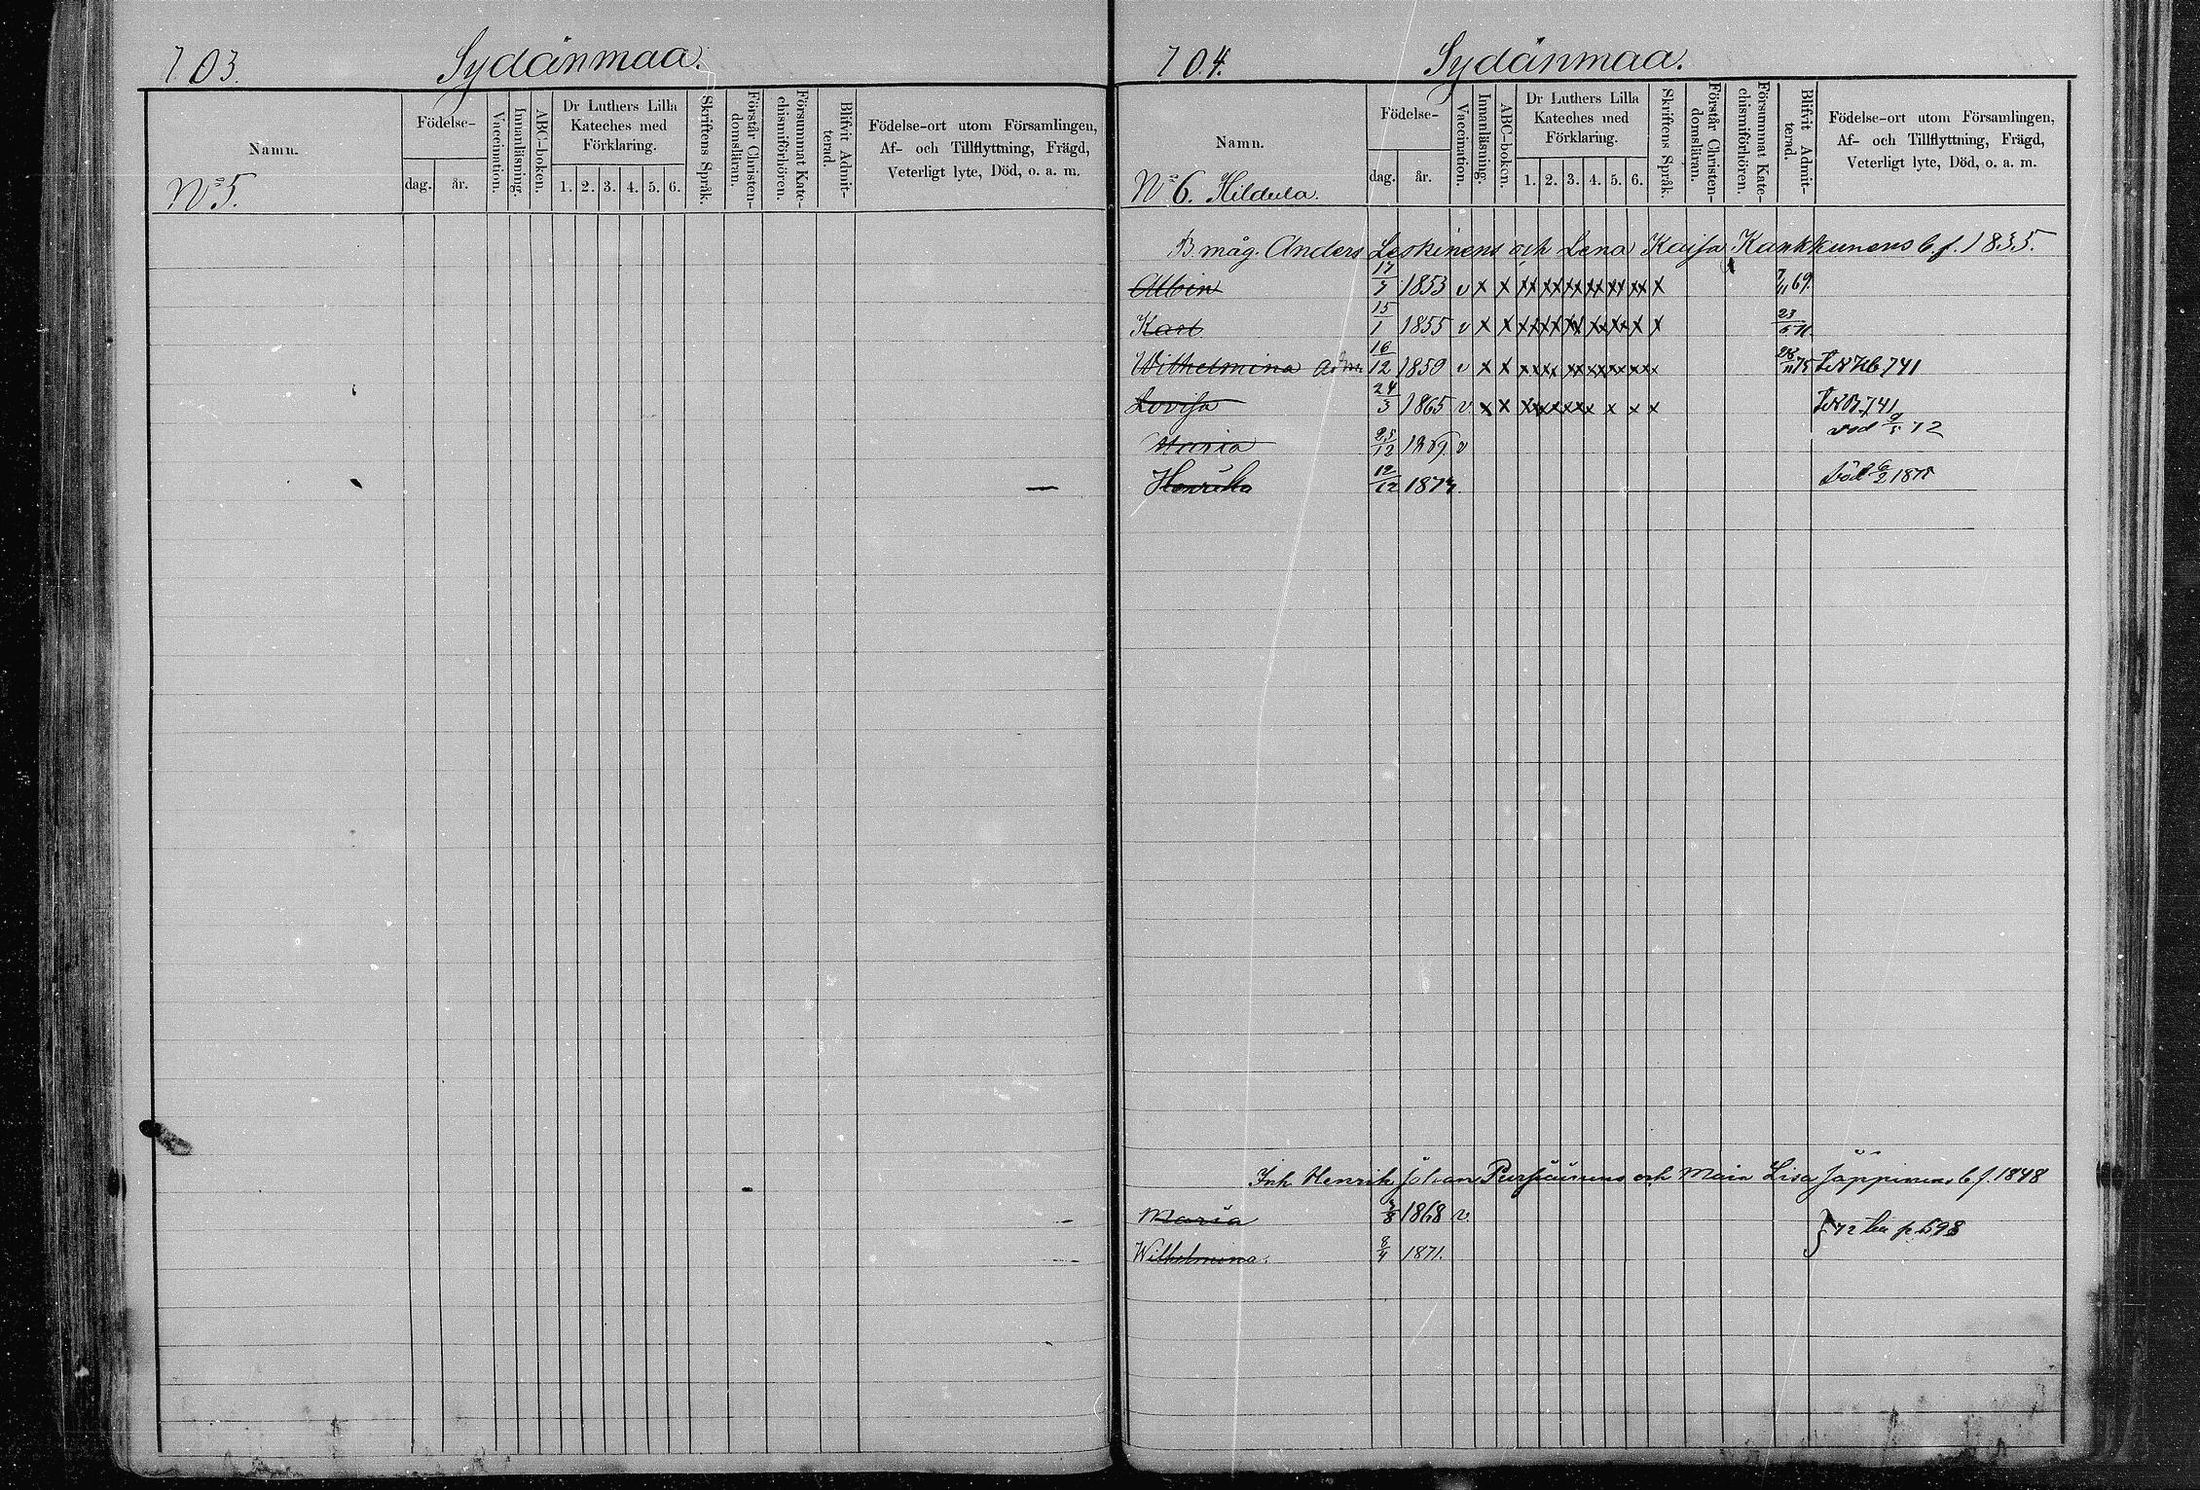 703.
Sydänmaa.
Namn.
Födelse-
dag.
år.
Vaccination.
Innanläsning.
ABC-boken.
Dr Luthers Lilla
Kateches med
Förklaring.
1. 2. 3. 4. 5. 6.
Skriftens Språk.
Förstår Christen-
domsläran.
Försummat Kate-
chismiförhören.
Blifvit Admit-
terad.
Födelse-ort utom Församlingen,
Af- och Tillflyttning, Frägd,
Veterligt lyte, Död, o. a. m.
No 5.
704.
Sydänmaa.
Namn.
Födelse-
dag.
år.
Vaccination.
Innanläsning.
ABC-boken.
Dr Luthers Lilla
Kateches med
Förklaring.
1. 2. 3. 4. 5. 6.
Skriftens Språk.
Förstår Christen-
domsläran.
Försummat Kate-
chismiförhören.
Blifvit Admit-
terad.
Födelse-ort utom Församlingen,
Af- och Tillflyttning, Frägd,
Veterligt lyte, Död, o. a. m.
No 6. Hildula.
B. måg. Anders Leskinens och Lena Kaisa Kankkunens b. f. 1835.
Albin 17/7 1853 v x x xx xx xx xx xx xx x 7/11 69.
Karl 15/1 1855 v x x xx xx xx xx xx x x
Wilhelmina 16/12 1859 v x x 741
Lovisa 24/3 1865 v x x 741
Maria 25/12 1869 v
Henrika 12/12 1877. död 6/2 1878
Inh Henrik Johan och Maria Lisa Jäppinens b. f. 1848
Maria 1868 v
Wilhelmina 8/4 1871. p. 698